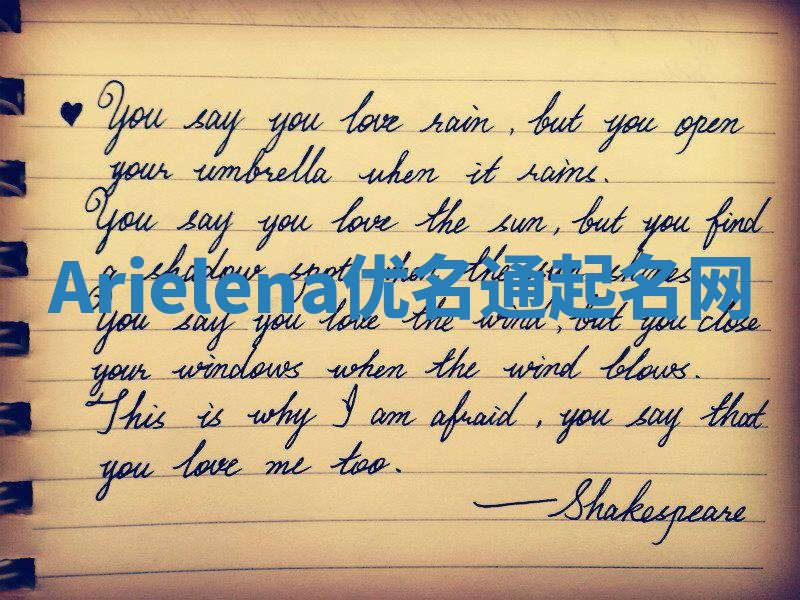 ♥ You say you love rain, but you open
your umbrella when it rains.
You say you love the sun, but you find
a shadow spot when the sun shines
Arielena优名通起名网
You say you love the wind, but you close
your windows when the wind blows.
This is why I am afraid, you say that
you love me too.
— Shakespeare